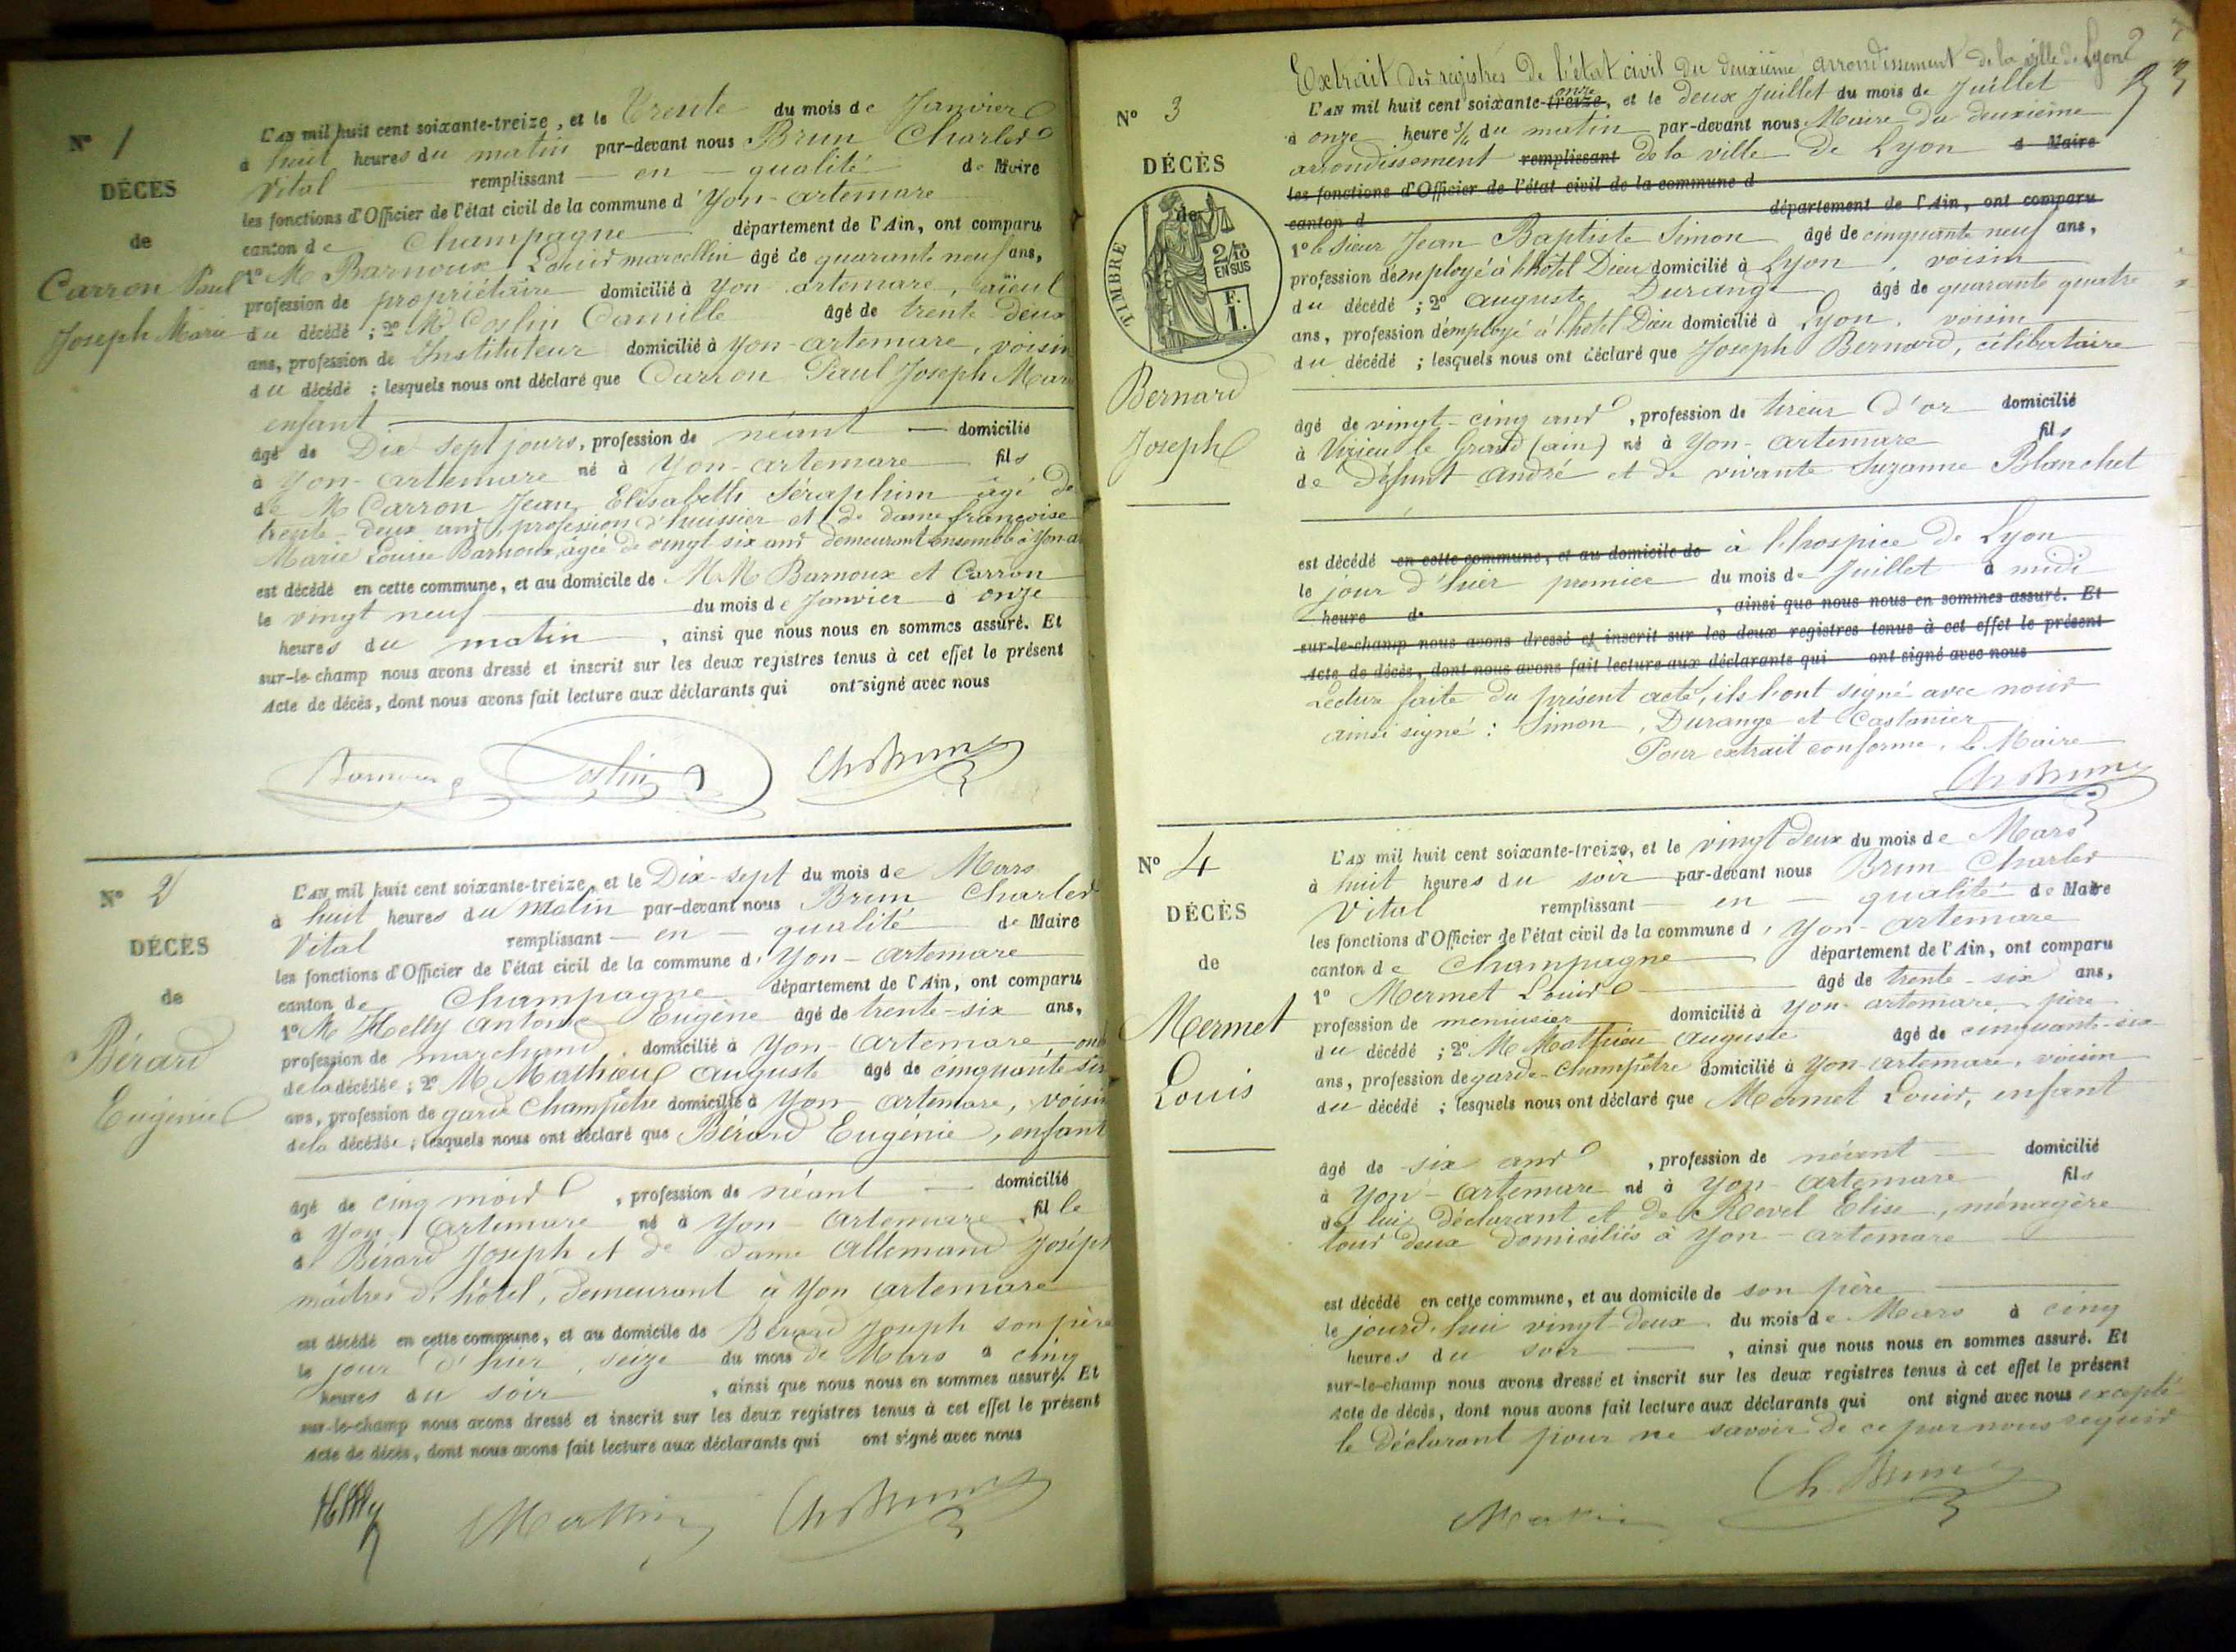 N° 1
DÉCÈS
de
Carron Paul
Joseph Marie
L'AN mil huit cent soixante-treize, et le Trente du mois de Janvier
à huit heures du matin par-devant nous Brun Charles
Vital remplissant en qualité de Maire
les fonctions d'Officier de l'état civil de la commune d'Yon-artemare
canton de Champagne département de l'Ain, ont comparu
1° M Barnoux Louis marcellin âgé de quarante neuf ans,
profession de propriétaire domicilié à Yon artemare, aïeul
du décédé ; 2° M Coslin Camille âgé de trente deux
ans, profession de Instituteur domicilié à Yon-artemare, voisin
du décédé ; lesquels nous ont déclaré que Carron Paul Joseph Mari
enfant
âgé de Dix sept jours, profession de néant domicilié
à Yon-artemare né à Yon-artemare fils
de M Carron Jean Elisabeth Séraphim âgé de
trente-deux ans, profession d'huissier et de dame françoise
Marie Louise Barnoux, âgée de vingt six ans demeurant ensemble à Yon-a
est décédé en cette commune, et au domicile de M M Barnoux et Carron
le vingt neuf du mois de Janvier à onze
heures du matin, ainsi que nous nous en sommes assuré. Et
sur-le-champ nous avons dressé et inscrit sur les deux registres tenus à cet effet le présent
Acte de décès, dont nous avons fait lecture aux déclarants qui ont signé avec nous
Barnoux Coslin Ch Brun
N° 2
DÉCÈS
de
Bérard
Eugénie
L'AN mil huit cent soixante-treize, et le Dix-sept du mois de Mars
à huit heures du matin par-devant nous Brun Charles
Vital remplissant en qualité de Maire
les fonctions d'Officier de l'état civil de la commune d'Yon-artemare
canton de Champagne département de l'Ain, ont comparu
1° M Helly Antoine Eugène âgé de trente-six ans,
profession de marchand, domicilié à Yon-artemare, on
de la décédée ; 2° M Mathieu auguste âgé de cinquante six
ans, profession de garde Champêtre domicilié à Yon-artemare, voisin
de la décédée ; lesquels nous ont déclaré que Bérard Eugénie, enfant
âgé de cinq mois, profession de néant domicilié
à Yon artemare né à Yon artemare fille
d Bérard Joseph et de dame Allemand Joséph
maîtres d'hôtel, demeurant à Yon artemare
est décédé en cette commune, et au domicile de Bérard Joseph son père
le jour d'hier, seize du mois de Mars à cinq
heures du soir, ainsi que nous nous en sommes assuré. Et
sur-le-champ nous avons dressé et inscrit sur les deux registres tenus à cet effet le présent
Acte de décès, dont nous avons fait lecture aux déclarants qui ont signé avec nous
Helly Mathieu Ch Brun
Extrait des registres de l'état civil du deuxième arrondissement de la ville de Lyon
2
N° 3
DÉCÈS
de
TIMBRE
2/10
EN SUS
F.
1.
Bernard
Joseph
onze
L'AN mil huit cent soixante-treize, et le deux Juillet du mois de Juillet
à onze heure 3/4 du matin par-devant nous Maire du deuxième
arrondissement remplissant de la ville de Lyon d Maire
les fonctions d'Officier de l'état civil de la commune d
canton d département de l'Ain, ont comparu
1° le sieur Jean Baptiste Simon âgé de cinquante neuf ans,
profession d'employé à l'hôtel Dieu domicilié à Lyon, voisin
du décédé ; 2° auguste Durange âgé de quarante quatre
ans, profession d'employé à l'hôtel Dieu domicilié à Lyon, voisin
du décédé ; lesquels nous ont déclaré que Joseph Bernard, célibataire
âgé de vingt-cinq ans, profession de tireur d'or domicilié
à Virieu le Grand (ain) né à Yon-artemare fils
de défunt andré et de vivante Suzanne Blanchet
est décédé en cette commune, et au domicile de à l'hospice de Lyon
le jour d'hier premier du mois de Juillet à midi
heure d, ainsi que nous nous en sommes assuré. Et
sur-le-champ nous avons dressé et inscrit sur les deux registres tenus à cet effet le présent
Acte de décès, dont nous avons fait lecture aux déclarants qui ont signé avec nous
Lecture faite du présent acte, ils l'ont signé avec nous
ainsi signé : Simon, Durange et Castanier
Pour extrait conforme, le Maire
Ch Brun
N° 4
DÉCÈS
de
Mermet
Louis
L'AN mil huit cent soixante-treize, et le vingt deux du mois de Mars
à huit heures du soir par-devant nous Brun Charles
Vital remplissant en qualité de Maire
les fonctions d'Officier de l'état civil de la commune d'Yon-artemare
canton de Champagne département de l'Ain, ont comparu
1° Mermet Louis âgé de trente-six ans,
profession de menuisier domicilié à Yon-artemare père
du décédé ; 2° M Mathieu auguste âgé de cinquante-six
ans, profession de garde-Champêtre domicilié à Yon-artemare, voisin
du décédé ; lesquels nous ont déclaré que Mermet Louis, enfant
âgé de six ans, profession de néant domicilié
à Yon-artemare né à Yon-artemare fils
de lui déclarant et de Revel Elise, ménagère
tous deux domiciliés à Yon-artemare
est décédé en cette commune, et au domicile de son père
le jourd'hui vingt-deux du mois de Mars à cinq
heures du soir, ainsi que nous nous en sommes assuré. Et
sur-le-champ nous avons dressé et inscrit sur les deux registres tenus à cet effet le présent
Acte de décès, dont nous avons fait lecture aux déclarants qui ont signé avec nous excepté
le déclarant pour ne savoir de ce par nous requis
Mathieu Ch. Brun